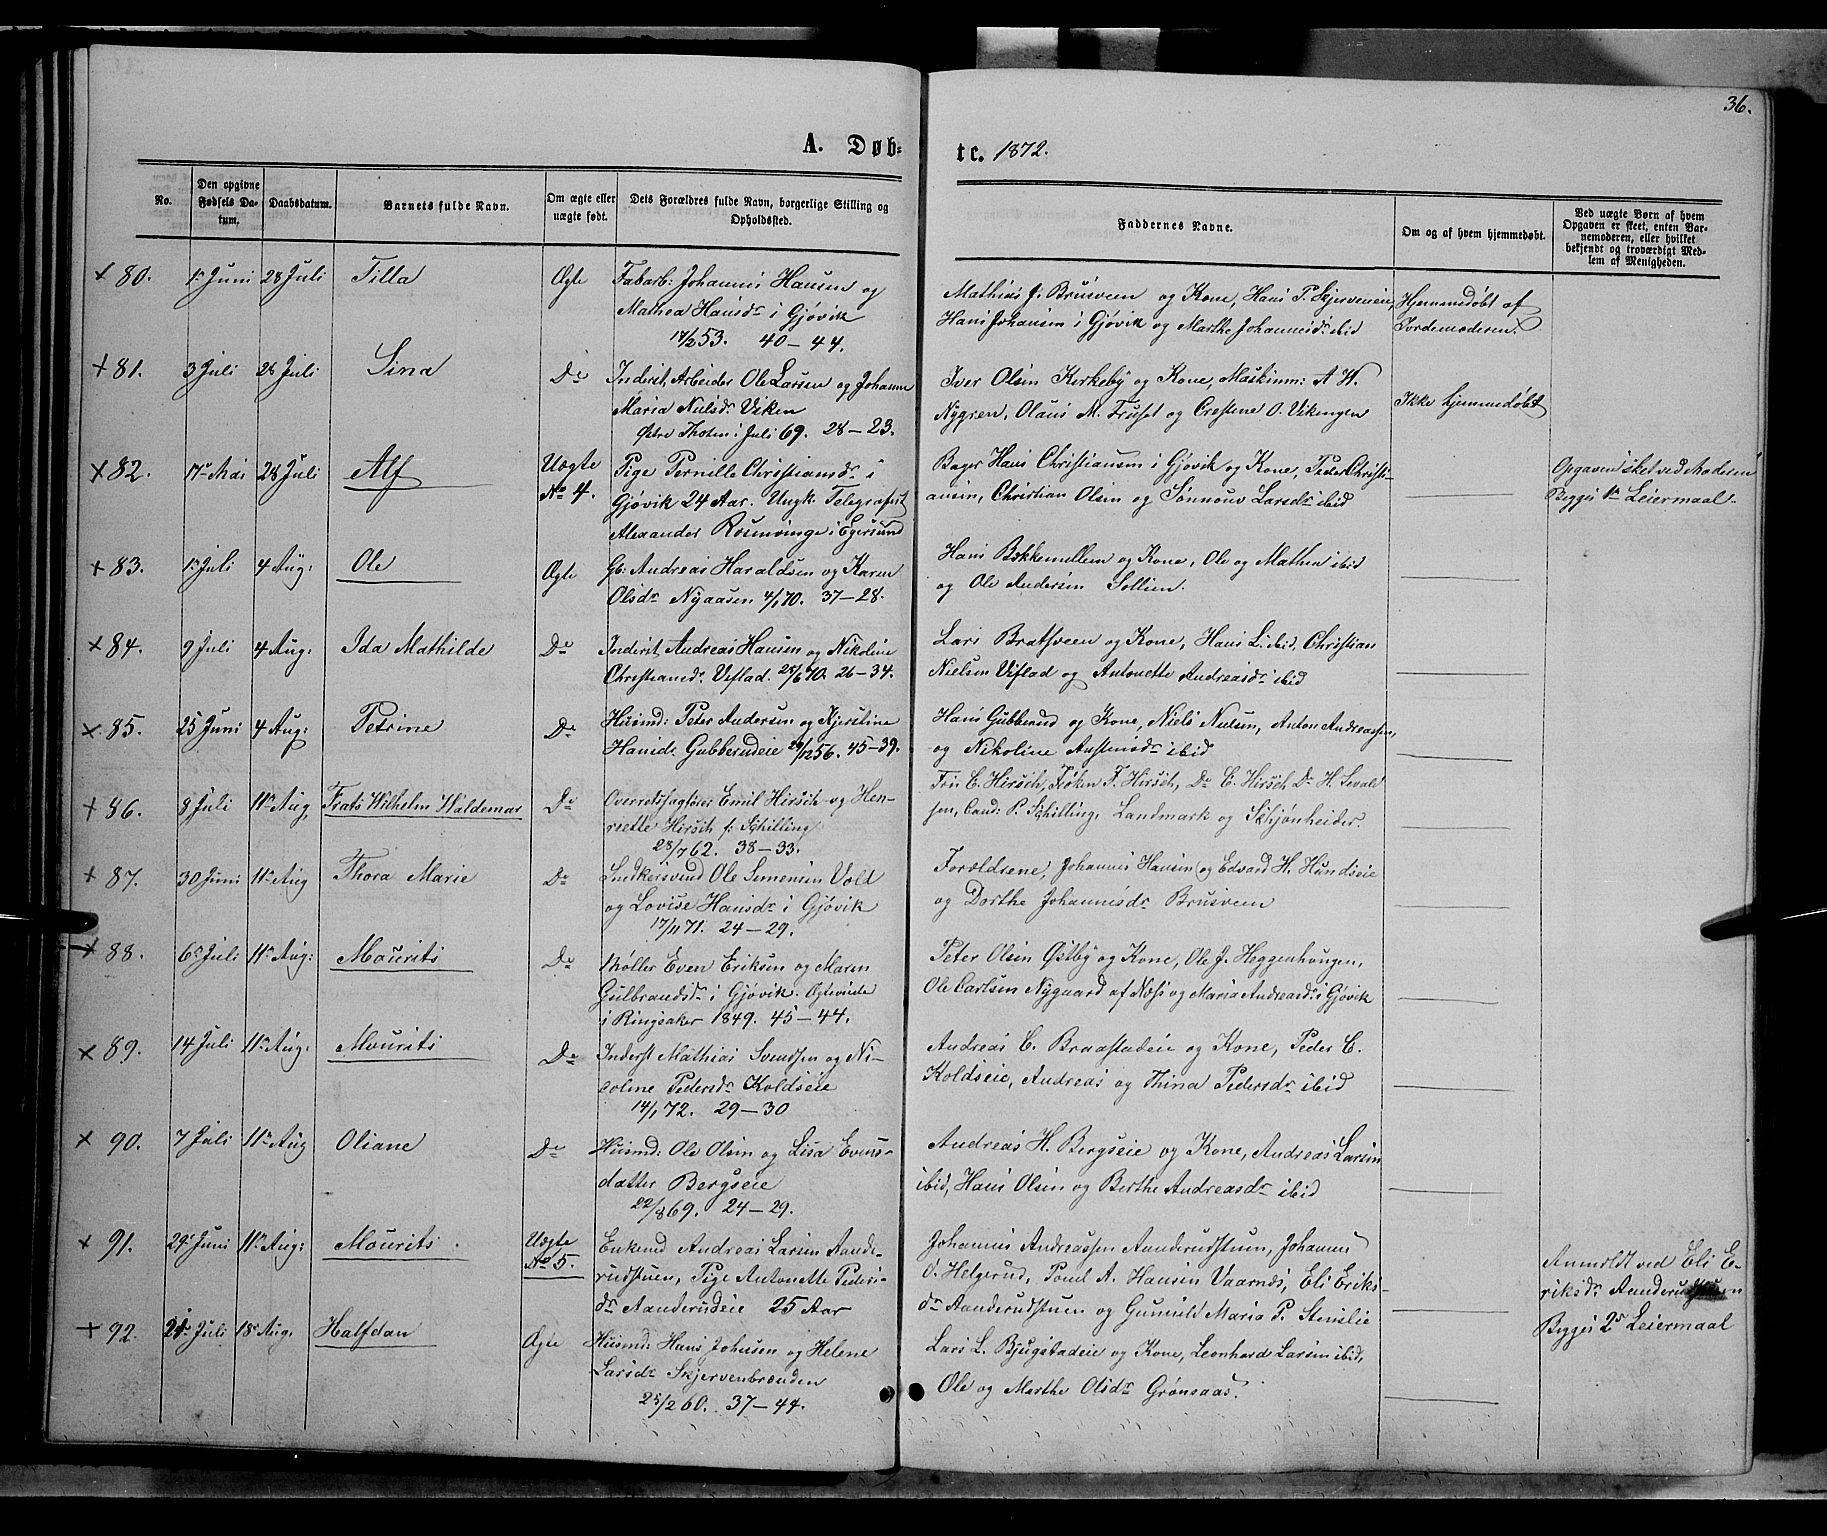 36.
A. Døb-
te. 1872.
No.
Den opgivne Fødsels Da-
tum.
Daabsdatum.
Barnets fulde Navn.
Om ægte eller uægte født.
Dets Forældres fulde Navn, borgerlige Stilling og Opholdssted.
Faddernes Navne.
Om og af hvem hjemmedøbt.
Ved uægte Børn af hvem
Opgaven er skeet, enten Bar-
nemoderen, eller hvilket
bekjendt og troværdigt Med-
lem af Menigheden.
+ 80. 1 Juni 28 Juli Tilla Ægte
Fabarb: Johannes Hansen og
Mathea Hansdr i Gjøvik
14/2 53. 40-44.
Mathias J. Brusveen og Kone, Hans P. Skjerveneie,
Hans Johansen i Gjøvik og Marthe Johannesdr ibid
Hjemmedøbt af
Jordemoderen.
+ 81. 3 Juli 28 Juli Sina Do
Inderst, Arbeider Ole Larsen og Johanne
Maria Nielsdr Viken
Østre Thoten i Juli 69. 28-23.
Iver Olsen Kirkeby og Kone, Maskinm: A H.
Nygren, Olaus M. Fruset og Crestine O. Vikengen
Ikke hjemmedøbt
+ 82. 17 Mai 28 Juli Alf Uægte
No 4.
Pige Pernille Christiansdr i
Gjøvik 24 Aar. Ungk. Telegrafist
Alexander Rosenvinge i Egersund
Bager Hans Christiansen i Gjøvik og Kone, Peder Christi-
ansen, Christian Olsen og Sønnøv Larsdr ibid
Opgaven sket ved Moderen
Begges 1ste Leiermaal.
+ 83. 1 Juli 4 Aug: Ole Ægte
Gb: Andreas Haraldsen og Karen
Olsdr Nyaasen 4/1 70. 37-28.
Hans Bækkemellem og Kone, Ole og Mathea ibid
og Ole Andersen Sollien.
+ 84. 9 Juli 4 Aug: Ida Mathilde Do
Inderst, Andreas Hansen og Nikoline
Christiansdr Viflad. 28/6 70. 26-34.
Lars Bratsveen og Kone, Hans L. ibid, Christian
Nielsen Viflad og Antonette Andreasdr ibid
x 85. 25 Juni 4 Aug: Petrine Do
Husmd: Peter Andersen og Kjerstine
Hansdr Gubberudeie 29/12 56. 45-39.
Hans Gubberud og Kone, Niels Nielsen, Anton Andreassen,
og Nikoline Austensdr ibid
+ 86. 8 Juli 11 Aug Frats Wilhelm Waldemar Do
Overretssagfører Emil Hirsch og Hen-
riette Hirsch f: Schilling
28/7 62. 38-33.
Fru C. Hirsch, Frøken F. Hirsch, Do C. Hirsch Do H. Sevald-
sen, Cand: P. Schilling, Landmark og Schjønheider.
+ 87. 30 Juni 11 Aug Thora Marie Do
Snedkersvend Ole Simensen Vold
og Lovise Hansdr i Gjøvik
17/11 71. 24-29.
Forældrene, Johannes Hansen og Edvard H. Hundseie
og Dorthe Johannesdr Brusveen
+ 88. 6 Juli 11 Aug: Mourits Do
Møller Even Eriksen og Maren
Gulbrandsdr i Gjøvik. Ægteviede
i Ringsaker 1849. 45-44.
Peter Olsen Østby og Kone, Ole J. Heggenhougen,
Ole Carlsen Nygaard af Næs og Maria Andreasdr i Gjøvik
x 89. 14 Juli 11 Aug: Mourits Do
Inderst Mathias Svendsen og Ni-
coline Pedersdr Koldseie
14/1 72. 29-30
Andreas C. Braastadeie og Kone, Peder C.
Koldseie, Andreas og Thina Pedersdr ibid
x 90. 7 Juli 11 Aug Oliane Do
Husmd: Ole Olsen og Lisa Evens-
datter Bergseie
22/8 69. 24-29.
Andreas H. Bergseie og Kone, Andreas Larsen
ibid, Hans Olsen og Berthe Andreasdr ibid
x 91. 24 Juni 11 Aug: Mourits. Uægte
No 5.
Enkemd Andreas Larsen Aande-
rudstuen, Pige Antonette Peders-
dr Aanderudeie 25 Aar
Johannes Andreassen Aanderudstuen, Johannes
O. Helgerud, Poul A. Hansen Vaarnæs, Eli Eriks-
dr Aanderudstuen og Gunild Maria P. Stenslie
Anmeldt ved Eli E-
riksdr Aanderudstuen
Begges 2det Leiermaal
+ 92. 21 Juli 18 Aug. Halfdan Ægte
Husmd: Hans Johnsen og Helene
Larsdr Skjervenbrænden
25/2 60. 37-44.
Lars L. Bjugstadeie og Kone, Leonhard Larsen ibid,
Ole og Marthe Olsdr Grønsaas.